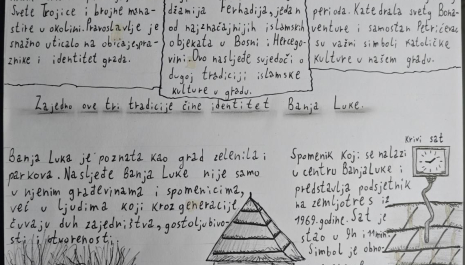 svete Trojice i brojne mana-
stire u okolini. Pravoslavlje je
snažno uticalo na običaje, pra-
znike i identitet grada.
džamija Ferhadija, jedan
od najznačajnijih islamskih
objekata u Bosni i Hercego-
vini. Ovo nasljeđe svjedoči o
dugoj tradiciji islamske
kulture u gradu.
perioda. Katedrala svety Bona-
venture i samostan Petrićevac
su važni simboli katoličke
kulture u našem gradu.
Zajedno ove tri tradicije čine identitet Banja Luke.
Banja Luka je poznata kao grad zelenila i
parkova. Nasljeđe Banja Luke nije samo
u njenim građevinama i spomenicima,
već u ljudima koji kroz generacije
čuvaju duh zajedništva, gostoljubivo-
sti i otvorenosti.
Spomenik koji se nalazi
u centru Banjaluke i
predstavlja podsjetnik
na zemljotres iz
1969. godine. Sat je
stao u 9h i 11min.
Simbol je obno-
krivi sat